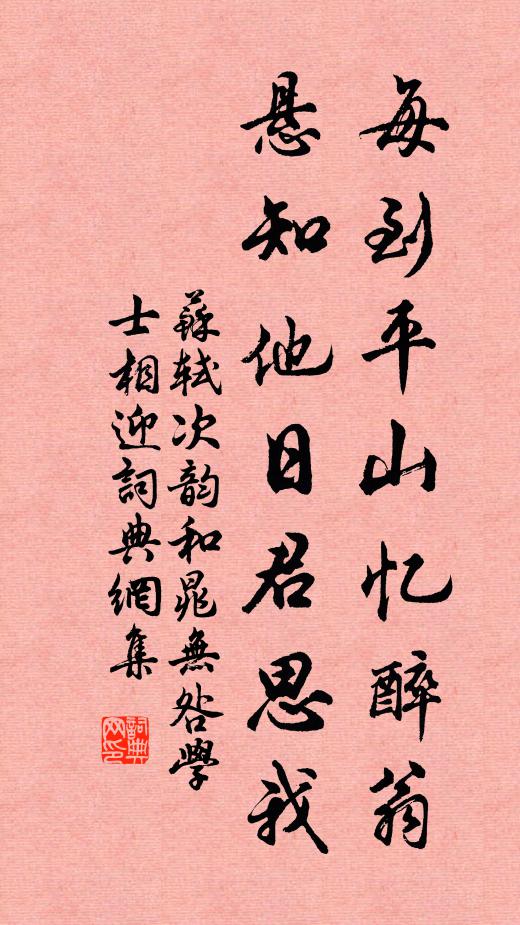 每到平山忆醉翁
悬知他日君思我
蘇軾次韵和晁無咎學
士相迎詞典網集
詞典
网印